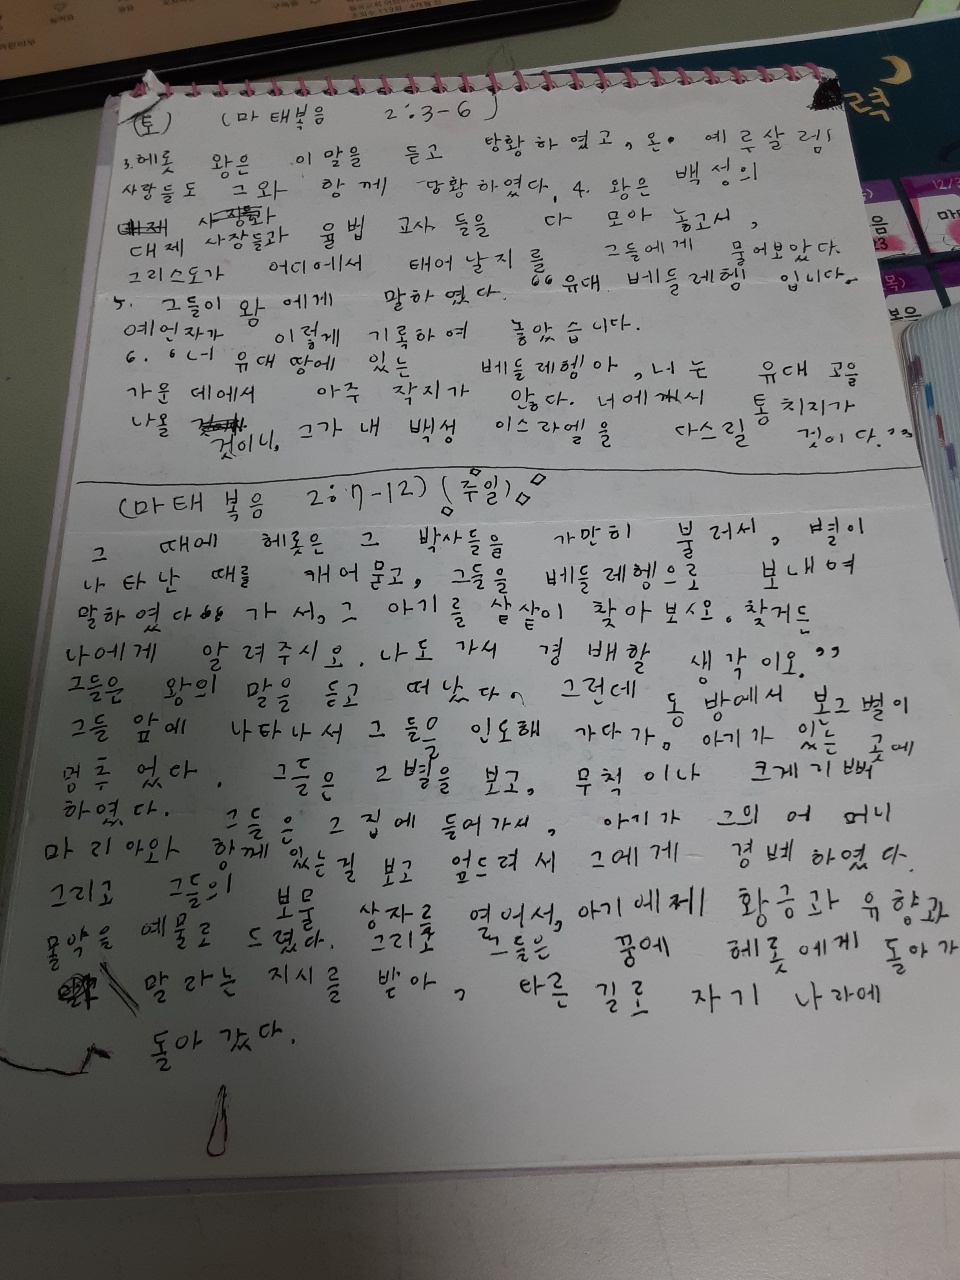 (토) (마태복음 2:3-6)
3. 헤롯 왕은 이 말을 듣고 탕황하였고, 온 예루살렘
사람들도 그와 함께 당황하였다. 4. 왕은 백성의
대제 사장들과 율법 교사 들을 다 모아 놓고서,
그리스도가 어디에서 태어날지를 그들에게 물어보았다.
5. 그들이 왕에게 말하였다. “유대 베들레헴 입니다.
예언자가 이렇게 기록하여 놓았습니다.
6. “너 유대 땅에 있는 베들레헴아, 너는 유대 고을
가운데에서 아주 작지가 않다. 너에게서 통치지가
나올 것이니, 그가 내 백성 이스라엘을 다스릴 것이다.”
(마태복음 2:7-12) (주일)
그 때에 헤롯은 그 박사들을 가만히 불러서, 별이
나타난 때를 캐어묻고, 그들을 베들레헴으로 보내여
말하였다 “가서, 그 아기를 샅샅이 찾아보시오. 찾거든
나에게 알려주시오. 나도 가서 경배할 생각이오.”
그들은 왕의 말을 듣고 떠났다. 그런데 동방에서 본 그 별이
그들 앞에 나타나서 그들을 인도해 가다가, 아기가 있는 곳에
멈추었다. 그들은 그 별을 보고, 무척이나 크게 기뻐
하였다. 그들은 그 집에 들어가서, 아기가 그의 어머니
마리아와 함께 있는걸 보고 엎드려서 그에게 경베하였다.
그리고 그들의 보물 상자를 열어서, 아기에게 황금과 유향과
몰약을 예물로 드렸다. 그리고 그들은 꿈에 헤롯에게 돌아가
말라는 지시를 받아, 다른 길로 자기 나라에
돌아갔다.
력